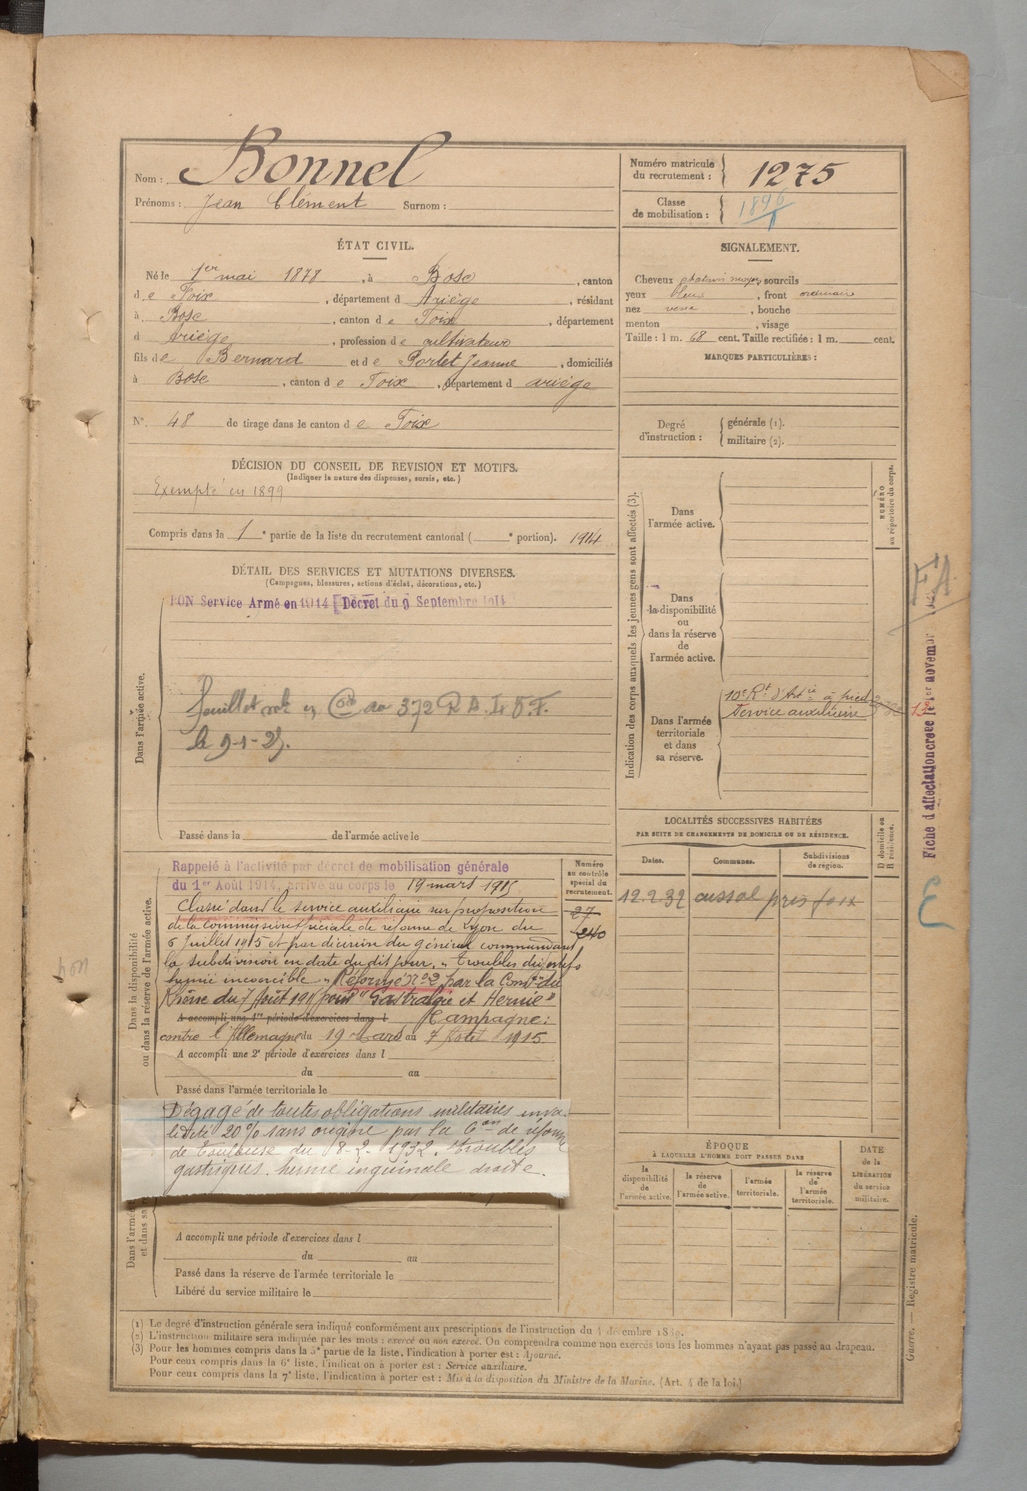 Nom : Bonnel
Prénoms : Jean Clément Surnom :
Numéro matricule du recrutement : 1275
Classe de mobilisation : 1896
ÉTAT CIVIL.
Né le 1er mai 1878, à Bosc, canton
de Foix, département d Ariège, résidant
à Bosc, canton de Foix, département
d Ariège, profession de cultivateur
fils de Bernard et de Portet Jeanne, domiciliés
à Bosc, canton de Foix, département d ariège
N° 48 de tirage dans le canton de Foix
SIGNALEMENT.
Cheveux chatain moyen, sourcils
yeux bleus, front ordinaire
nez , bouche
menton , visage
Taille : 1 m. 68 cent. Taille rectifiée : 1 m. cent.
MARQUES PARTICULIÈRES :
Degré d'instruction : générale (1).
militaire (2).
DÉCISION DU CONSEIL DE REVISION ET MOTIFS.
(Indiquer la nature des dispenses, sursis, etc.)
Exempté en 1899
Compris dans la 1e partie de la liste du recrutement cantonal ( e portion). 1914
DÉTAIL DES SERVICES ET MUTATIONS DIVERSES.
(Campagnes, blessures, actions d'éclat, décorations, etc.)
BON Service Armé en 1914 Décret du 9 Septembre 1914
Dans l'armée active.
372 R A L V F.
le 9-1-25.
Passé dans la de l'armée active le
Indication des corps auxquels les jeunes gens sont affectés (3).
NUMÉRO au répertoire du corps.
Dans
l'armée active.
Dans
la disponibilité
ou
dans la réserve
de
l'armée active.
Dans l'armée
territoriale
et dans
sa réserve.
10e Rt d'Artie à pied
Service auxiliaire
Fiche d'affectation créée le 1er novembre
FA
LOCALITÉS SUCCESSIVES HABITÉES
PAR SUITE DE CHANGEMENTS DE DOMICILE OU DE RÉSIDENCE.
Dates. Communes. Subdivisions de région. D domicile ou R résidence.
12.2.32 cussol pres foix
Dans la disponibilité
ou dans la réserve de l'armée active.
Numéro au contrôle spécial du recrutement.
37
240
Rappelé à l'activité par décret de mobilisation générale
du 1er Août 1914, arrivé au corps le 19 mars 1915
Classé dans le service auxiliaire sur proposition
de la Commission spéciale de réforme de Lyon du
6 Juillet 1915 et par décision du général commandant
la subdivision en date du dit jour. "Troubles digestifs
hernie incoercible". Réformé n°2 par la Comon du
Rhône du 7 Août 1915 pour "Gastralgie et Hernie"
A accompli une 1re période d'exercices dans l Campagne :
contre l'Allemagne du 19 Mars au 7 Août 1915
A accompli une 2e période d'exercices dans l
du au
Passé dans l'armée territoriale le
Dégagé de toutes obligations militaires inva-
lidité 20% sans origine par la Con de réforme
de Toulouse du 18-2-1932. troubles
gastriques. hernie inguinale droite.
A accompli une période d'exercices dans l
du au
Passé dans la réserve de l'armée territoriale le
Libéré du service militaire le
ÉPOQUE
À LAQUELLE L'HOMME DOIT PASSER DANS
la disponibilité de l'armée active.
la réserve de l'armée active.
l'armée territoriale.
la réserve de l'armée territoriale.
DATE de la LIBÉRATION du service militaire.
(1) Le degré d'instruction générale sera indiqué conformément aux prescriptions de l'instruction du 4 décembre 1889.
(2) L'instruction militaire sera indiquée par les mots : exercé ou non exercé. On comprendra comme non exercés tous les hommes n'ayant pas passé au drapeau.
(3) Pour les hommes compris dans la 5e partie de la liste, l'indication à porter est : Ajourné.
Pour ceux compris dans la 6e liste, l'indication à porter est : Service auxiliaire.
Pour ceux compris dans la 7e liste, l'indication à porter est : Mis à la disposition du Ministre de la Marine. (Art. 4 de la loi.)
Guerre. — Registre matricule.